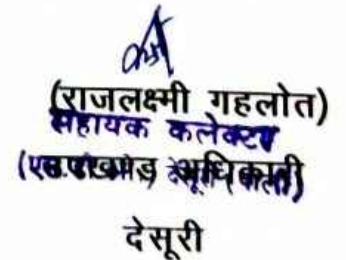 (राजलक्ष्मी गहलोत)
सहायक कलेक्टर
उपखण्ड अधिकारी
देसूरी